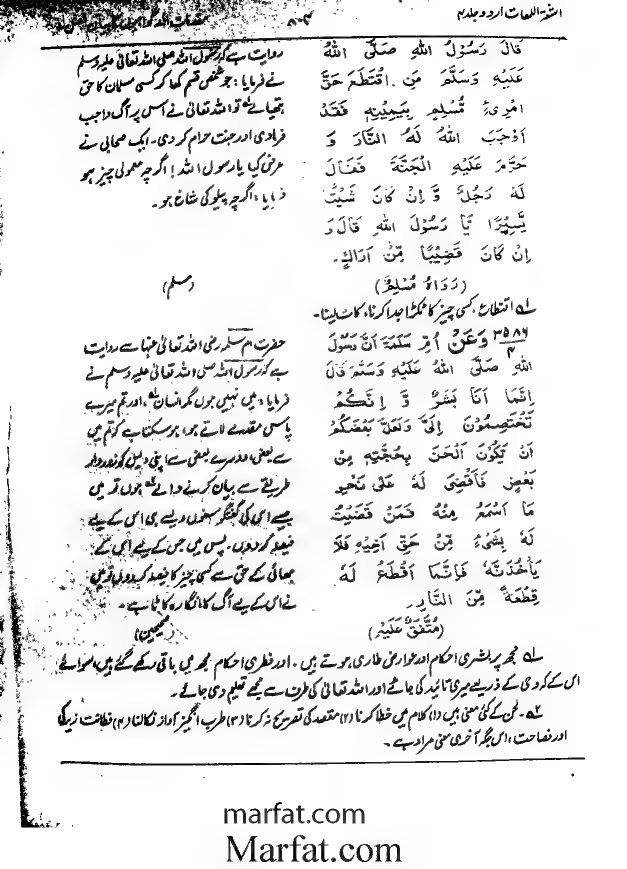 اشعۃ اللعات اردو جلد ۴
۸۰۴
قَالَ رَسُوْلُ اللهِ صَلَّى اللهُ
عَلَيْهِ وَسَلَّمَ مَنِ اقْتَطَعَ حَقَّ
امْرِئٍ مُّسْلِمٍ بِيَمِيْنِهٖ فَقَدْ
اَوْجَبَ اللهُ لَهُ النَّارَ وَ
حَرَّمَ عَلَيْهِ الْجَنَّةَ فَقَالَ
لَهُ رَجُلٌ وَّ اِنْ كَانَ شَيْئًا
يَّسِيْرًا يَا رَسُوْلَ اللهِ قَالَ وَ
اِنْ كَانَ قَضِيْبًا مِّنْ اَرَاكٍ۔
(رَوَاهُ مُسْلِمٌ)
روایت ہے کہ رسول اللہ صلی اللہ تعالیٰ علیہ وسلم
نے فرمایا: جو شخص قسم کھا کر کسی مسلمان کا حق
ہتھیالے تو اللہ تعالیٰ نے اس پر آگ واجب
فرمادی اور جنت حرام کر دی۔ ایک صحابی نے
عرض کیا یا رسول اللہ! اگرچہ معمولی چیز ہو
فرمایا: اگرچہ پیلو کی شاخ ہو۔
(مسلم)
لہ اقتطاع، کسی چیز کا ٹکڑا جدا کرنا، کاٹ لینا۔
۳۵۸۶/۴ وَعَنْ اُمِّ سَلَمَةَ اَنَّ رَسُوْلَ
اللهِ صَلَّى اللهُ عَلَيْهِ وَسَلَّمَ قَالَ
اِنَّمَا اَنَا بَشَرٌ وَّ اِنَّكُمْ
تَخْتَصِمُوْنَ اِلَيَّ وَلَعَلَّ بَعْضَكُمْ
اَنْ يَّكُوْنَ اَلْحَنَ بِحُجَّتِهٖ مِنْ
بَعْضٍ فَاَقْضِيَ لَهُ عَلٰى نَحْوِ
مَا اَسْمَعُ مِنْهُ فَمَنْ قَضَيْتُ
لَهُ بِشَيْءٍ مِّنْ حَقِّ اَخِيْهِ فَلَا
يَاْخُذَنَّهُ فَاِنَّمَا اَقْطَعُ لَهُ
قِطْعَةً مِّنَ النَّارِ۔
(مُتَّفَقٌ عَلَيْهِ)
حضرت ام سلمہ رضی اللہ تعالیٰ عنہا سے روایت
ہے کہ رسول اللہ صلی اللہ تعالیٰ علیہ وسلم نے
فرمایا: میں نہیں ہوں مگر انسان لہ، اور تم میرے
پاس مقدمے لاتے ہو، ہوسکتا ہے کہ تم میں
سے بعض، دوسرے بعض سے اپنی دلیل کو زوردار
طریقے سے بیان کرنے والے ہوں تو میں
جیسے اس کی گفتگو سنوں ویسے ہی اس کے لیے
فیصلہ کردوں، پس میں جس کے لیے اس کے
بھائی کے حق سے کسی چیز کا فیصلہ کردوں تو میں
نے اس کے لیے آگ کا انگارہ کاٹا ہے۔
(صحیحین)
لہ مجھ پر بشری احکام اور عوارض طاری ہوتے ہیں۔ اور فطری احکام مجھ میں باقی رکھے گئے ہیں، سوائے
اس کے کہ وحی کے ذریعے میری تائید کی جائے اور اللہ تعالیٰ کی طرف سے مجھے تعلیم دی جائے۔
۲ہ۔ لحن کے کئی معنی ہیں (۱) کلام میں خطا کرنا (۲) مقصد کی تصریح نہ کرنا (۳) طرب انگیز آواز نکالنا (۴) فطانت زیرکی
اور فصاحت، اس جگہ آخری معنی مراد ہے۔
marfat.com
Marfat.com